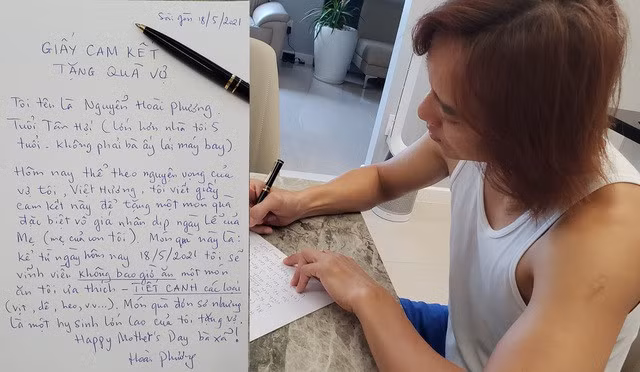 Sài gòn 18/5/2021
GIẤY CAM KẾT
TẶNG QUÀ VỢ
Tôi tên là Nguyễn Hoài Phương
Tuổi Tân Hợi (Lớn hơn nhỉa tôi 5
tuổi. không phải bà ấy lái máy bay)
Hôm nay thể theo nguyện vọng của
vợ tôi, Việt Hương, tôi viết giấy
cam kết này để tặng một món quà
đặc biệt vô giá nhân dịp ngày Lễ của
Mẹ (mẹ của con tôi). Món quà này là:
kể từ ngày hôm nay 18/5/2021 tôi sẽ
vĩnh viễn không bao giờ ăn một món
ăn tôi ưa thích - TIẾT CANH các loại
(vịt, dê, heo, v.v...). Món quà đơn sơ nhưng
là một hy sinh lớn lao của tôi tặng vợ!
Happy Mother's Day bà xã!
Hoài Phương